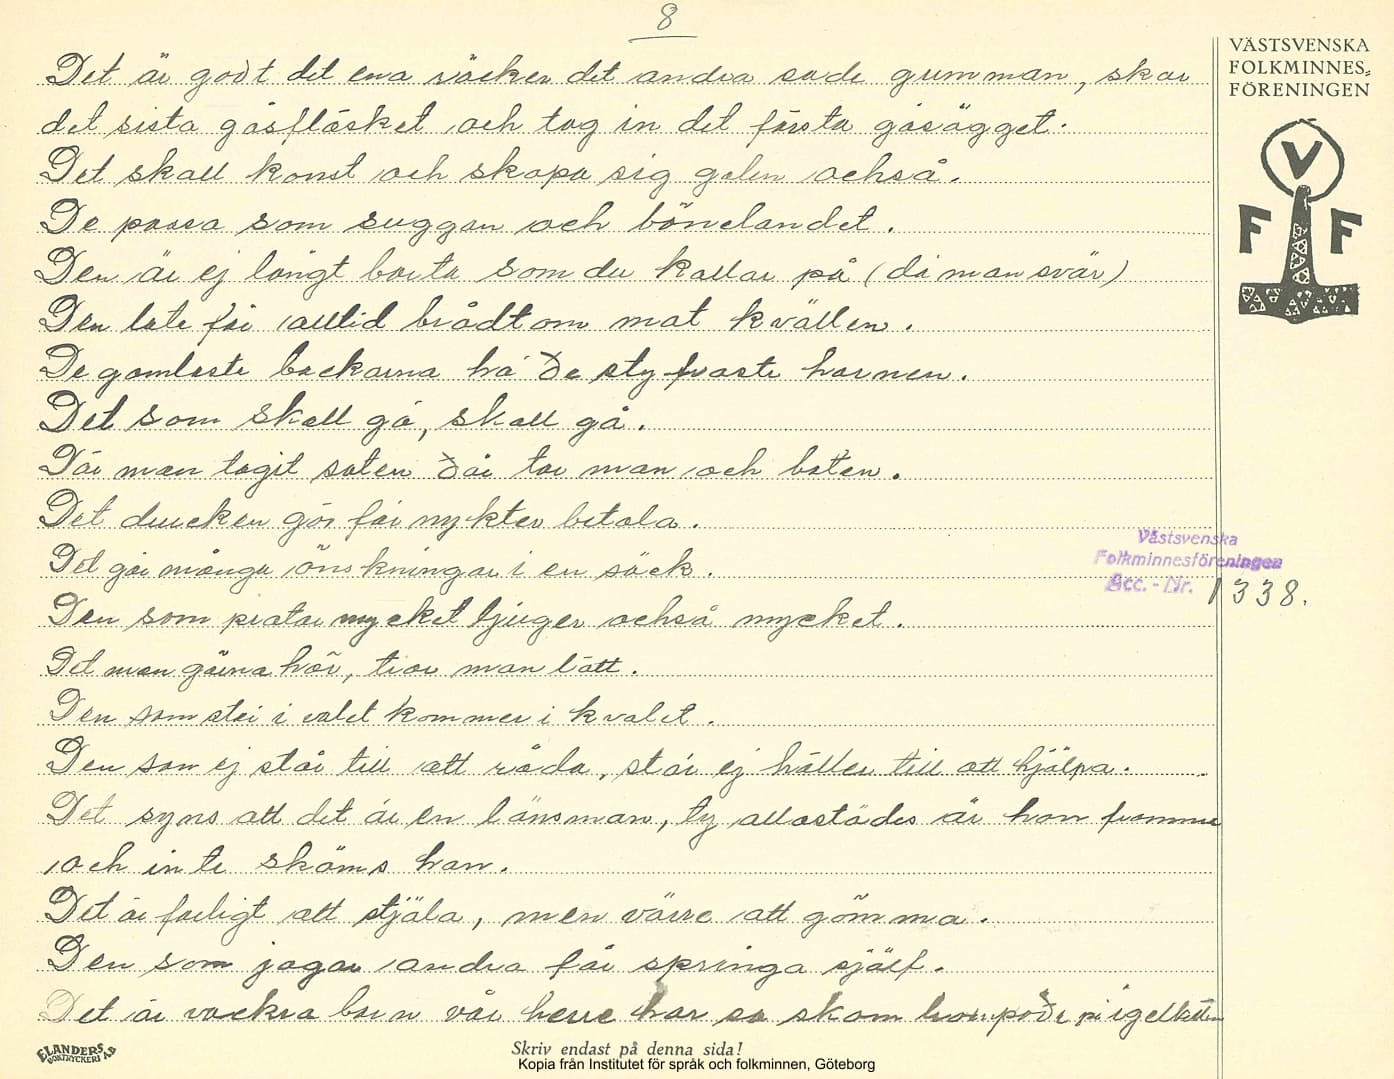 8
VÄSTSVENSKA
FOLKMINNES-
FÖRENINGEN
V
F F
Det är godt det ena räcker det andra sade gumman, skar
det sista gåsfläsket och tog in det första gåsägget.
Det skall konst och skapa sig galen också.
De passa som suggan och bönelandet.
Den är ej långt borta som du kallar på (då man svär)
Den late får alltid brådtom mat kvällen.
De gamlaste bockarna ha de styfvaste hornen.
Det som skall gå, skall gå.
Där man tagit saten där tar man och baten.
Det drucken gör får nykter betala.
Det går många önskningar i en säck.
Den som pratar mycket ljuger också mycket.
Det man gärna hör, tror man lätt.
Den som står i valet kommer i kvalet.
Den som ej står till att råda, står ej häller till att hjälpa.
Det syns att det är en länsman, ty allastädes är han framme
och inte skäms han.
Det är farligt att stjäla, men värre att gömma.
Den som jagar andra får springa själf.
Det är vackra barn vår herre har sa skam han på igelkotten
Västsvenska
Folkminnesföreningen
Acc. - Nr. 1338.
ELANDERS
BOKTRYCKERI A.B
Skriv endast på denna sida!
Kopia från Institutet för språk och folkminnen, Göteborg